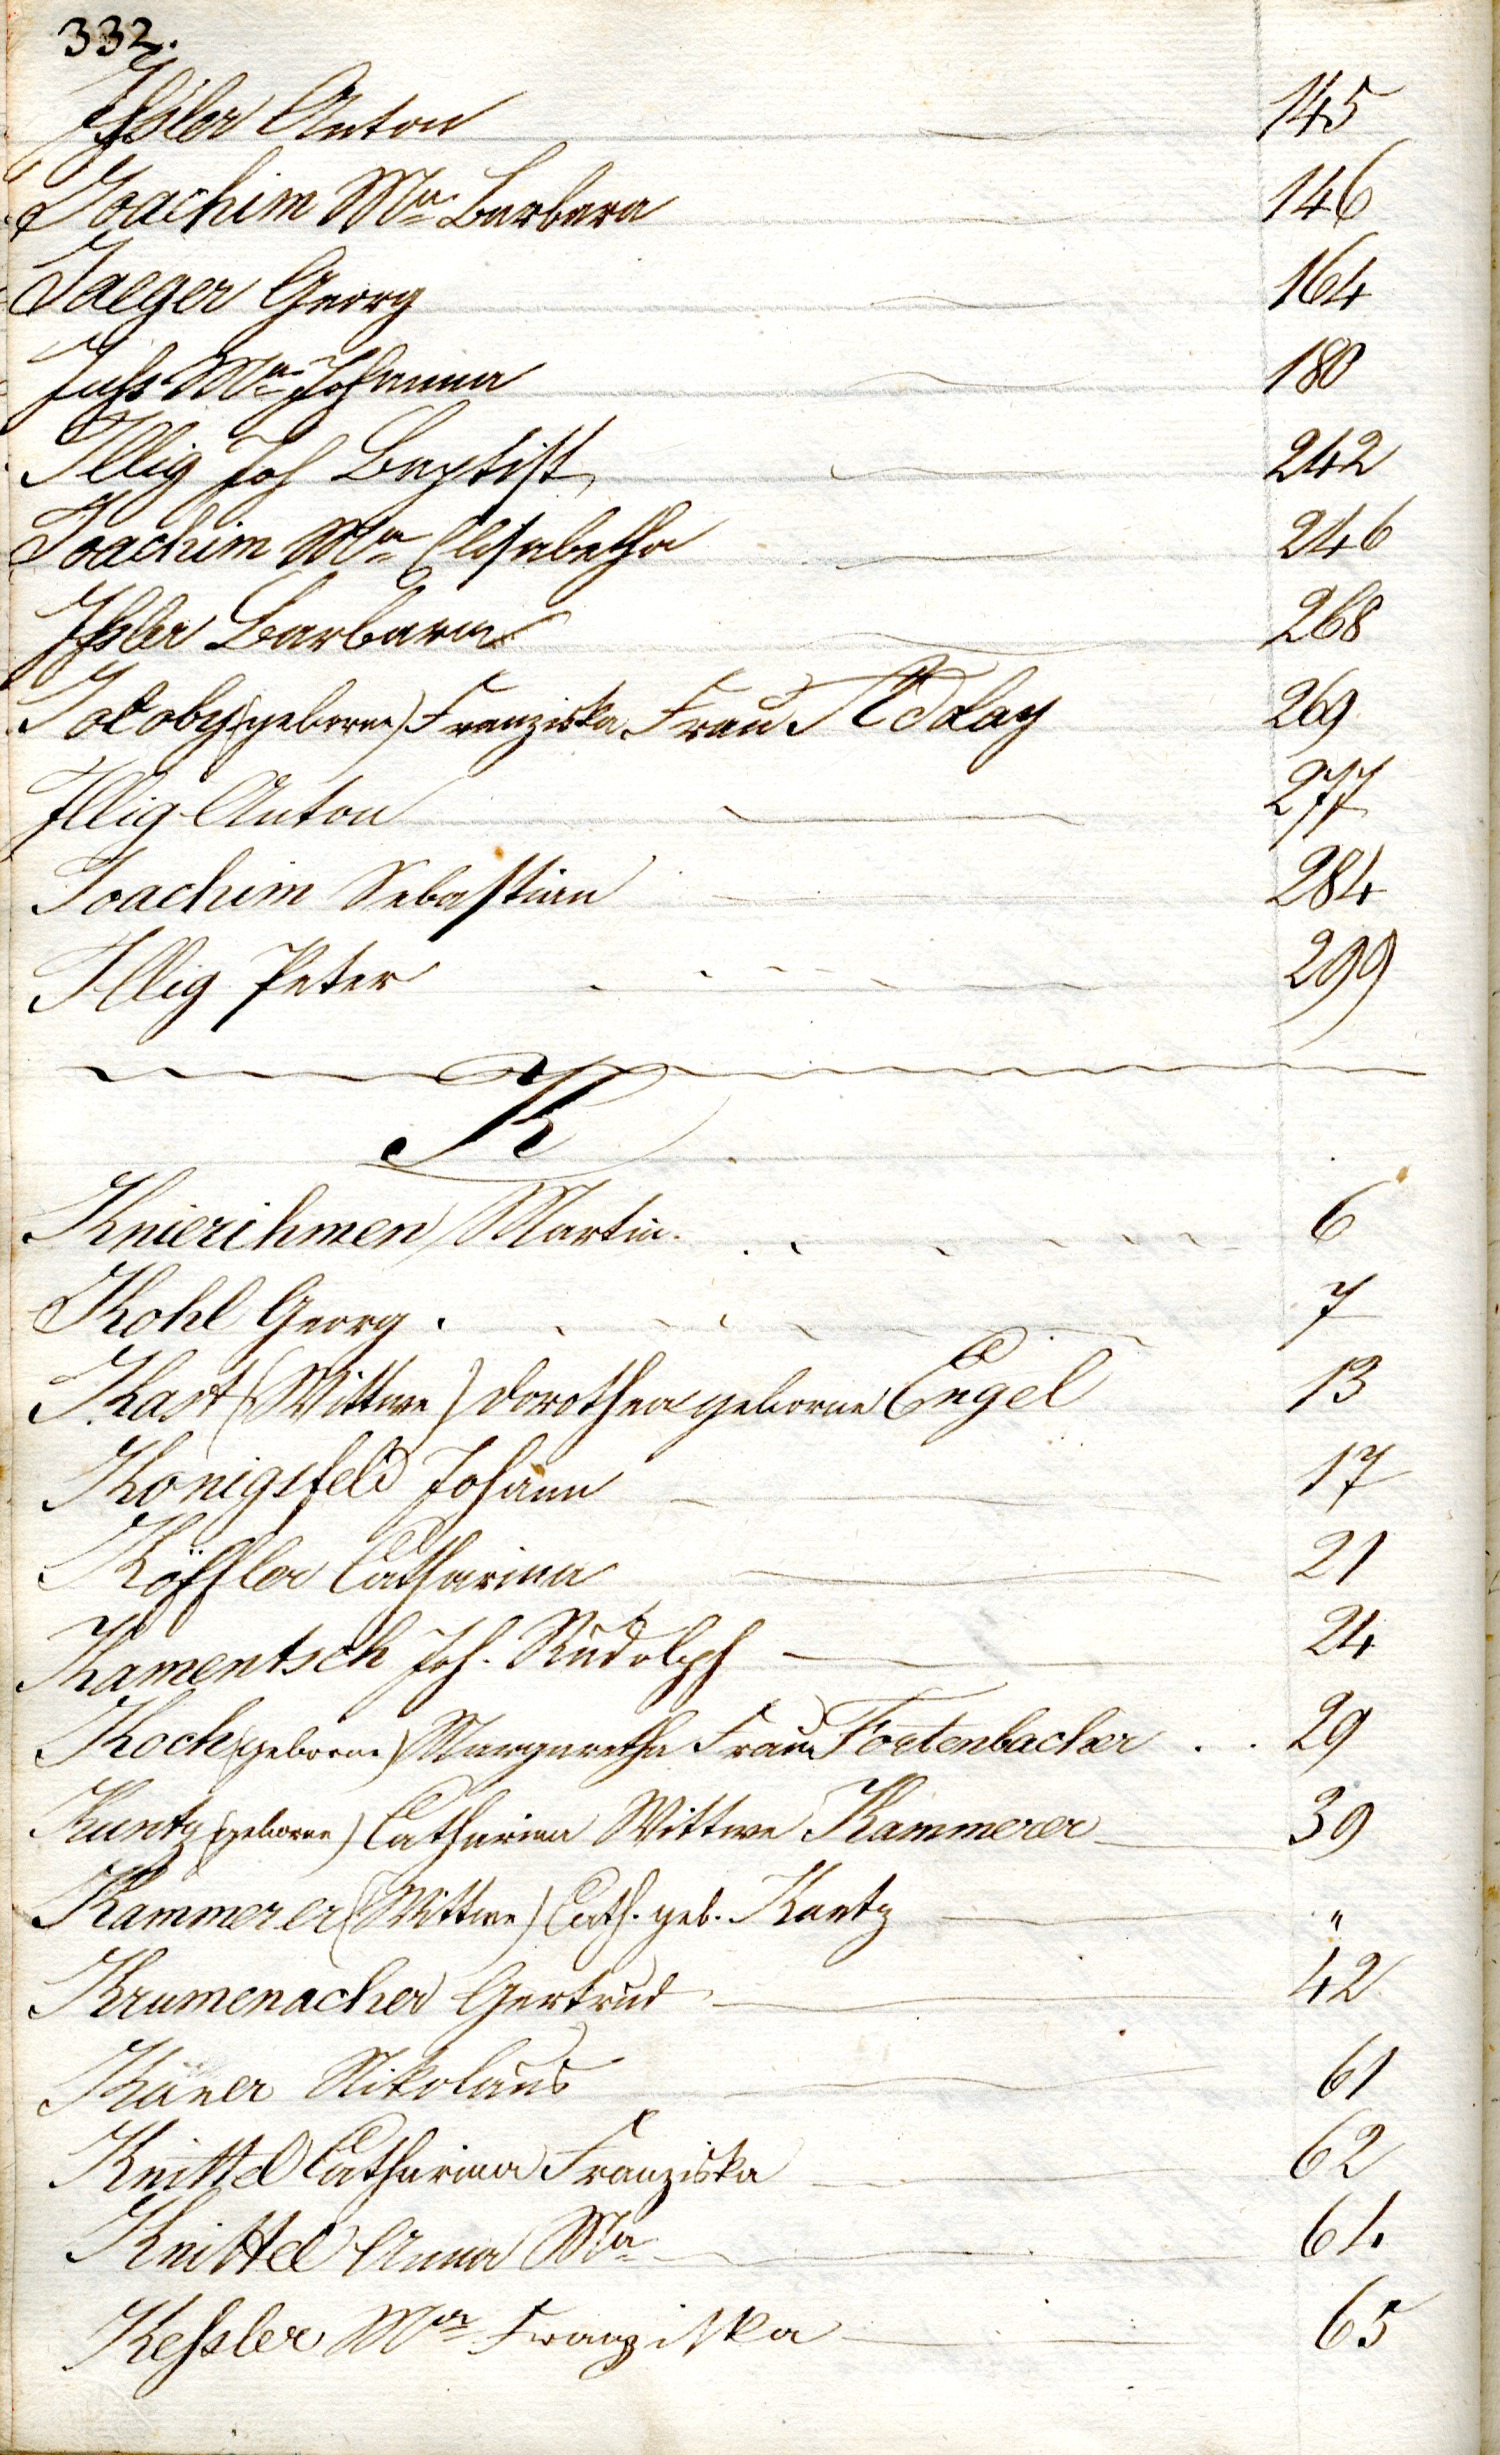 332.
Ißler Anton 145
Joachim Ma Barbara 146
Jaeger Georg 164
Ma Johanna 180
Illig Joh Baptist 242
Joachim Ma Elisabetha 246
Ißler Barbara 268
Jacoby (geborne) Franziska Frau Adday 269
Illig Anton 277
Joachim Sebastian 284
Illig Peter 299
K
Knierihmen Martin. 6
Kohl Georg . 7
Kast (Wittwe) Dorothea geborne Engel 13
Konigsfeld Johann 17
Köffler Catharina 21
Kamentsch Joh. Rudolph 24
Koch (geborne) Margaretha Frau Fortenbacher . . 29
Kuntz (geborne) Catharina Wittwe Kammerer 39
Kammerer (Wittwe) Cath. geb. Kuntz "
Krumenacher Gertrud 42
Käner Nikolaus 61
Knittel Catharina Franziska 62
Knittel Anna Ma 64
Keßler Ma Franziska 65